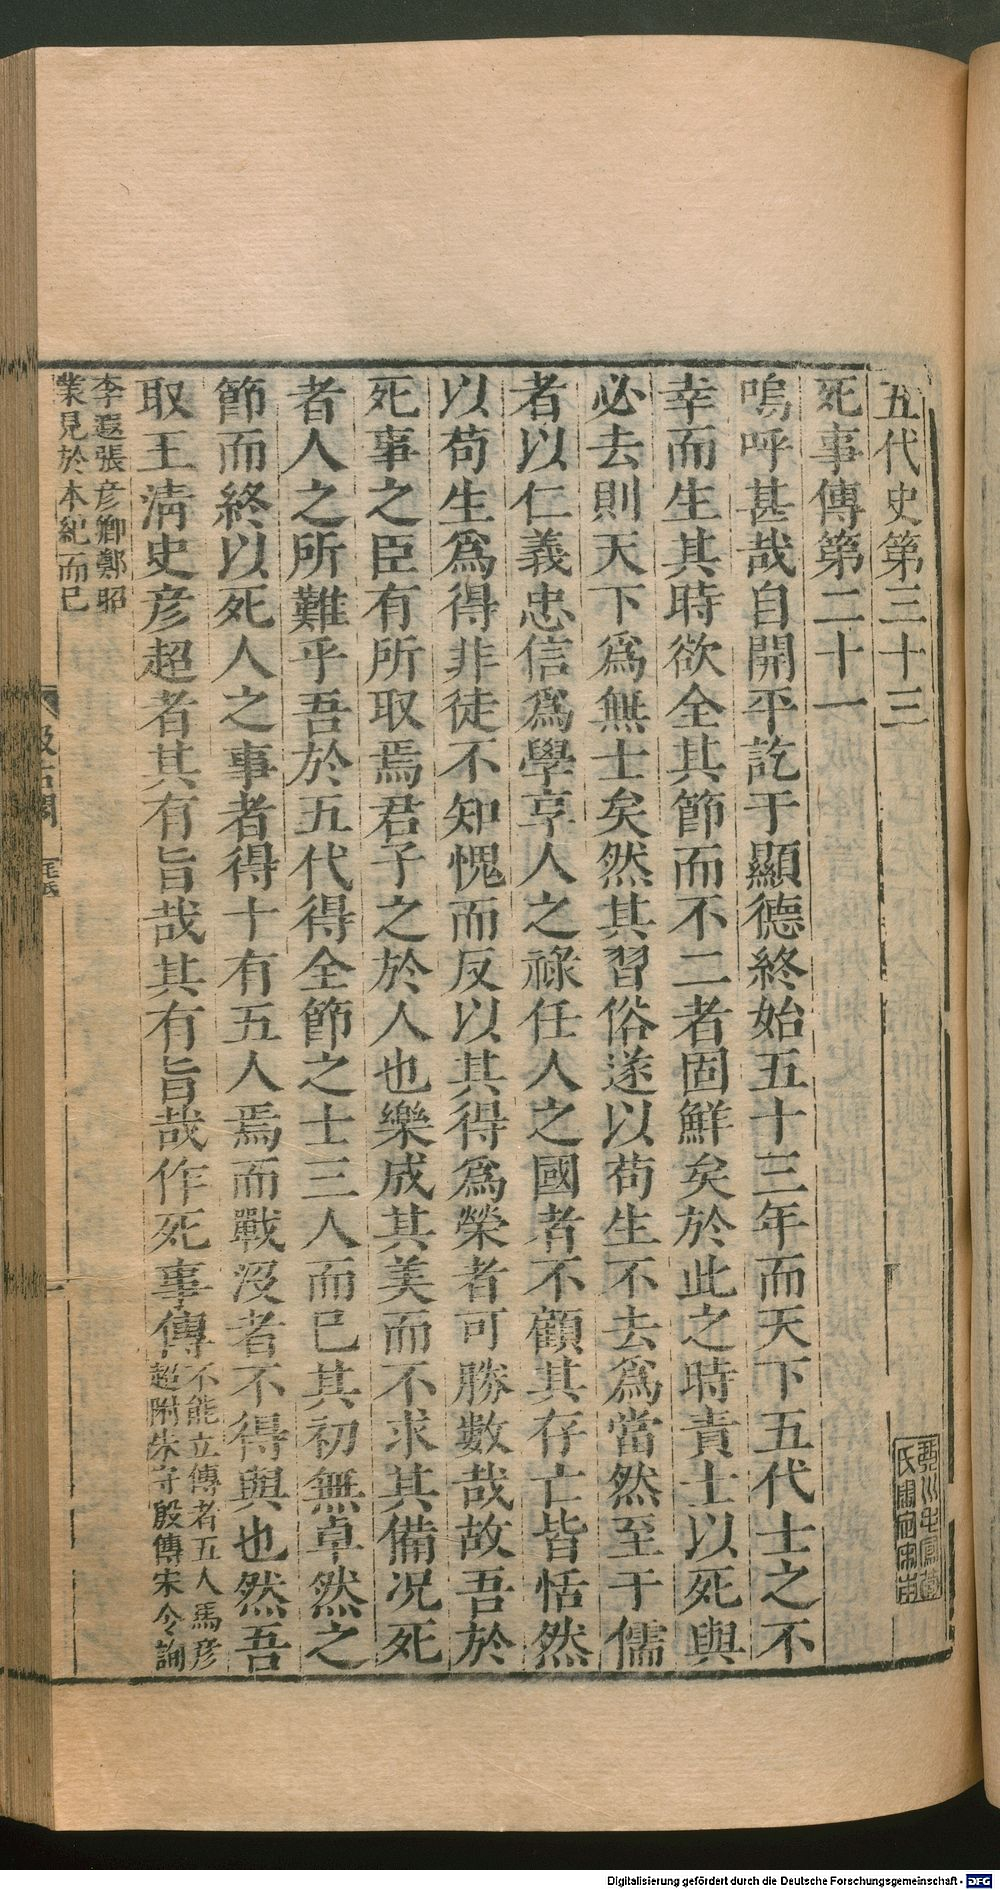 五代史第三十三
死事傳第二十一
嗚呼甚哉自開平訖于顯德終始五十三年而天下五代士之不
幸而生其時欲全其節而不二者固鮮矣於此之時責士以死與
必去則天下爲無士矣然其習俗遂以苟生不去爲當然至于儒
者以仁義忠信爲學享人之祿任人之國者不顧其存亡皆恬然
以苟生爲得非徒不知愧而反以其得爲榮者可勝數哉故吾於
死事之臣有所取焉君子之於人也樂成其美而不求其備况死
者人之所難乎吾於五代得全節之士三人而已其初無卓然之
節而終以死人之事者得十有五人焉而戰沒者不得與也然吾
取王淸史彦超者其有旨哉其有旨哉作死事傳
不能立傳者五人馬彦
超附朱守殷傳宋令詢
李遐張彦卿鄭昭
業見於本紀而已
汲古閣
Digitalisierung gefördert durch die Deutsche Forschungsgemeinschaft - DFG